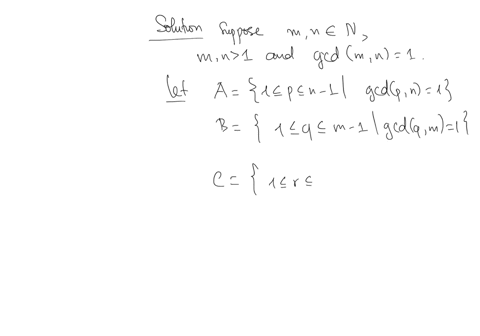 Solution Suppose m, n ∈ N,
m, n > 1 and gcd (m, n) = 1.
let A = { 1 ≤ p ≤ n-1 | gcd(p, n) = 1 }
B = { 1 ≤ q ≤ m-1 | gcd(q, m) = 1 }
C = { 1 ≤ r ≤